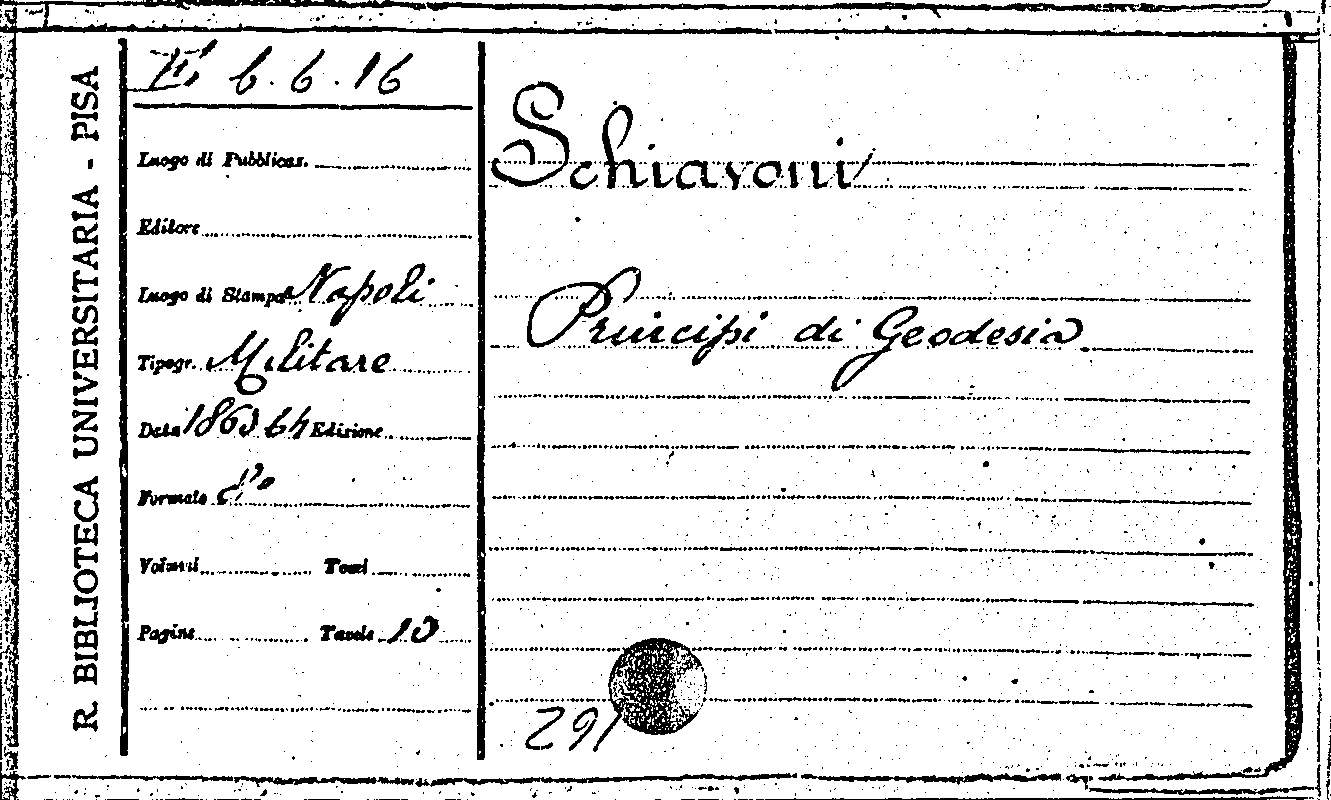 R. BIBLIOTECA UNIVERSITARIA - PISA
6.6.16
Luogo di Pubblicaz.
Editore
Luogo di Stampa Napoli
Tipogr. Militare
Data 1863 64 Edizione
Formato 8°
Volumi Tomi
Pagine Tavole 10
Schiavoni
Principi di Geodesia
291